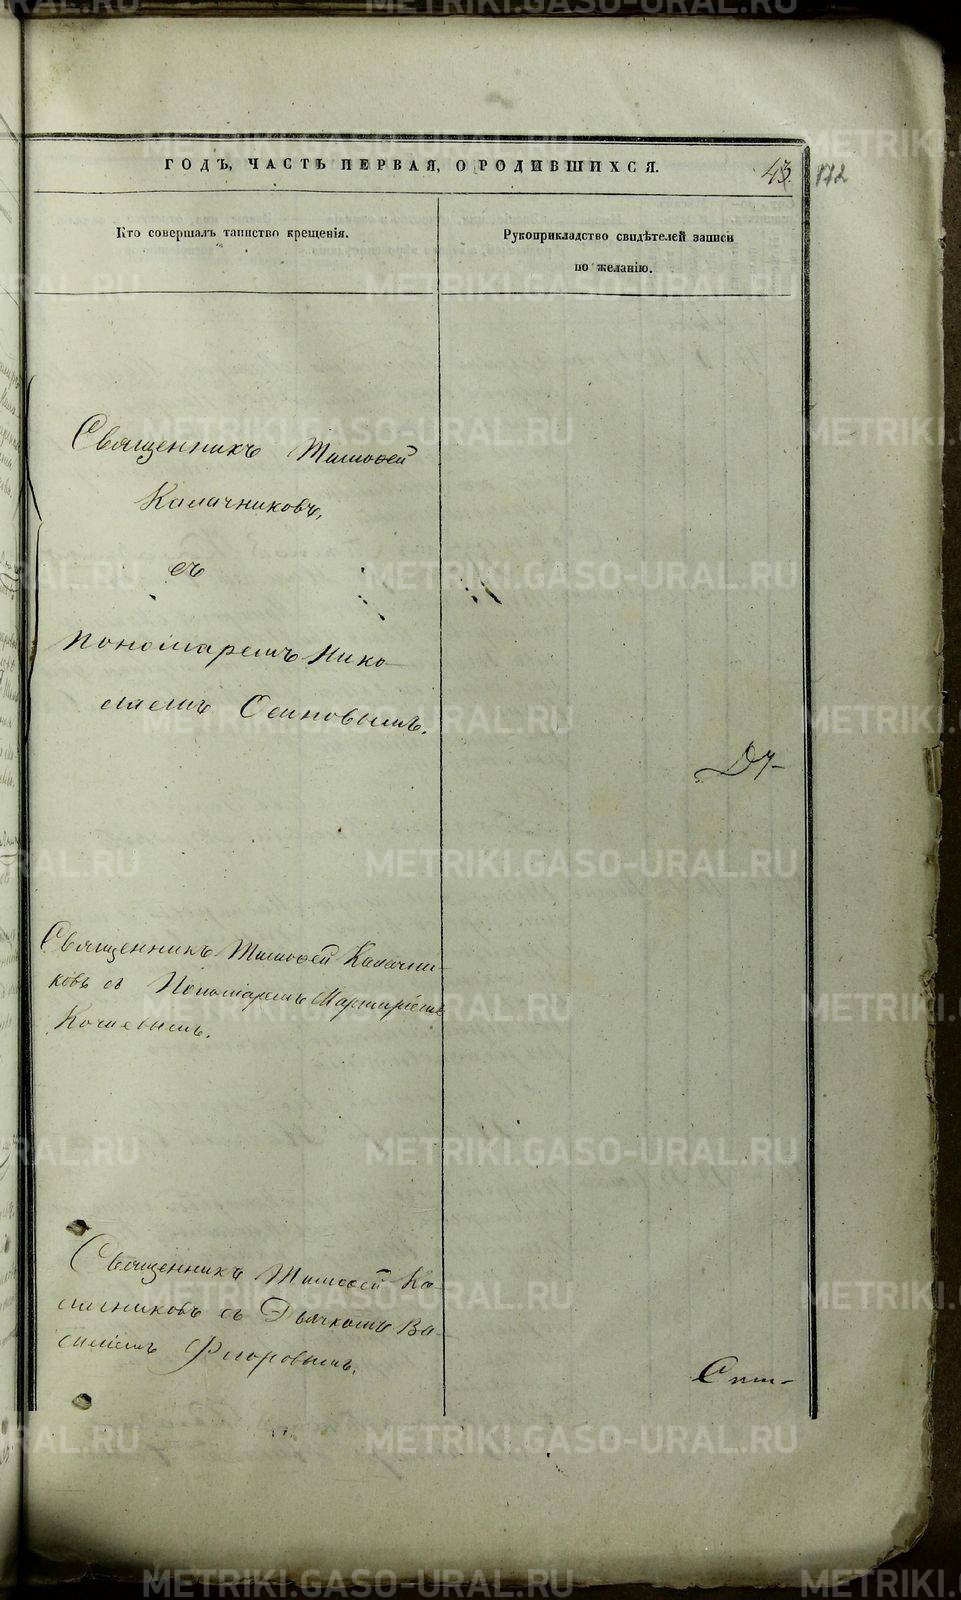 ГОДЪ, ЧАСТЬ ПЕРВАЯ, О РОДИВШИХСЯ.
43.
172
Кто совершалъ таинство крещенія.
Рукоприкладство свидѣтелей записи
по желанію.
Священникъ Тимоѳей
Калачниковъ,
съ
Пономаремъ Нико-
лаемъ Осиновымъ.
Ду-
Священникъ Тимоѳей Калачни-
ковъ съ Пономаремъ Мартиріемъ
Священникъ Тимоѳей Ка-
лачниковъ съ Дьячкомъ Ва-
силіемъ Флоровымъ.
METRIKI.GASO-URAL.RU